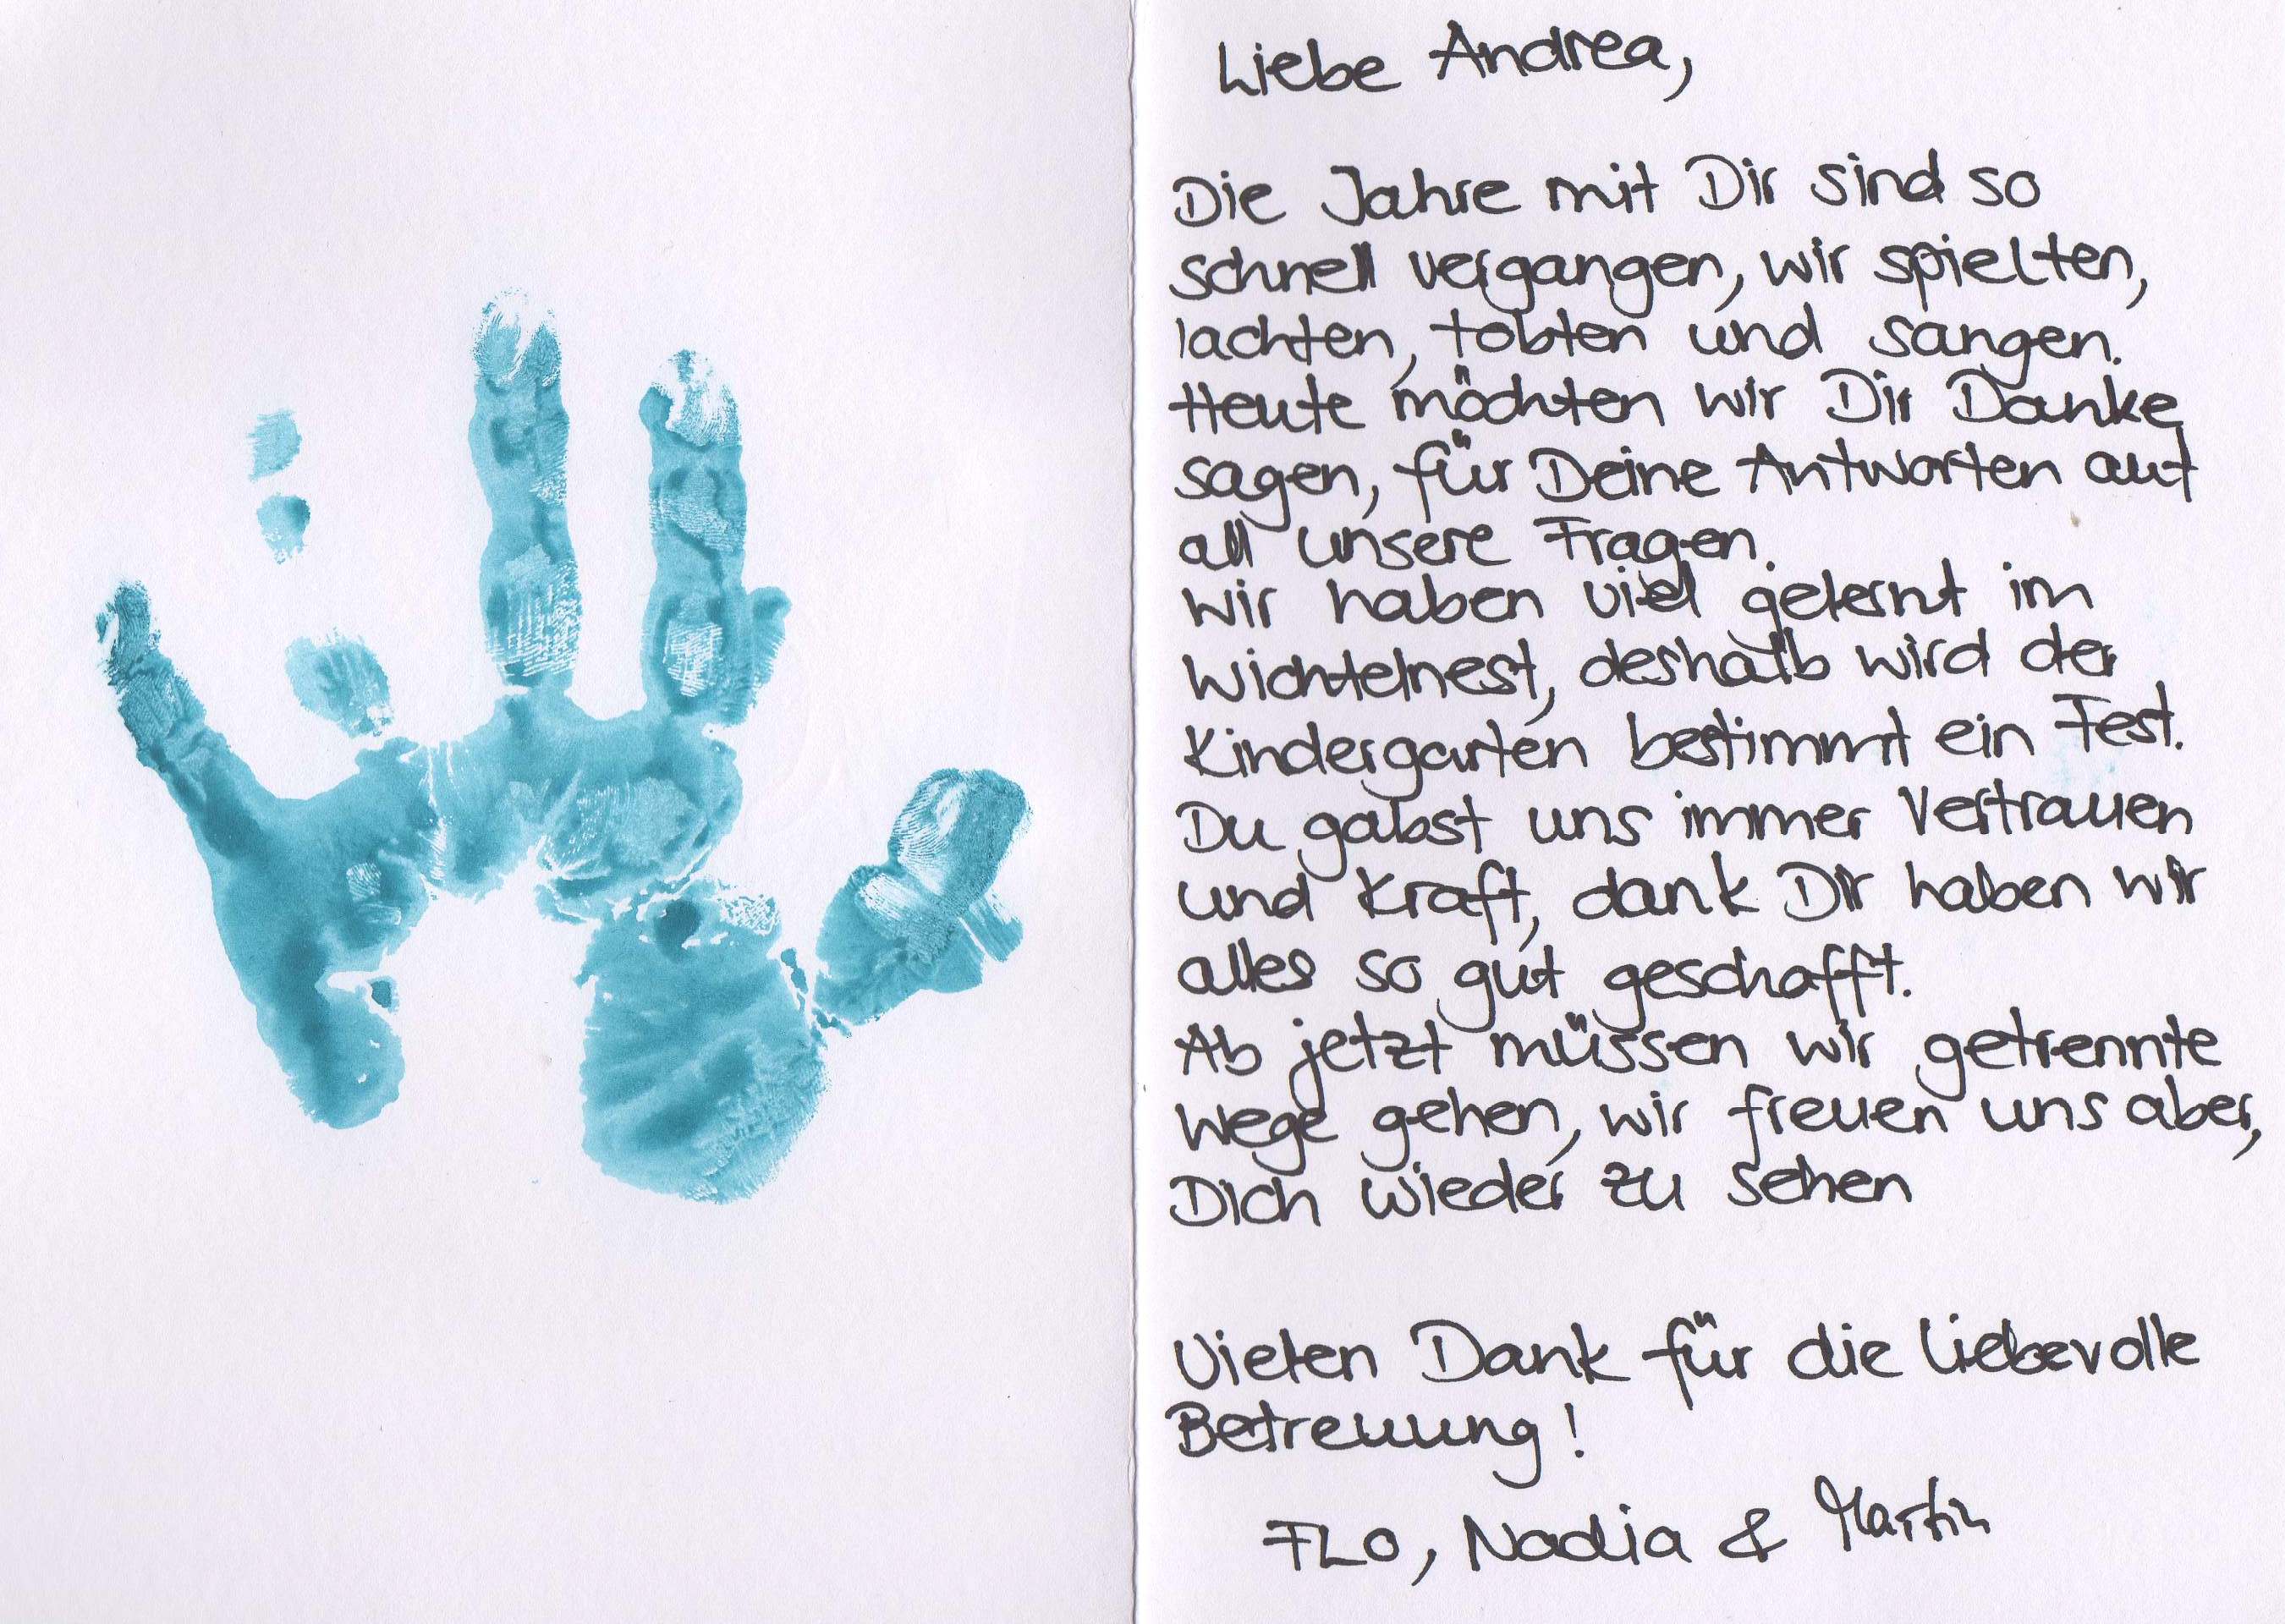 Liebe Andrea,
Die Jahre mit Dir sind so
schnell vergangen, wir spielten,
lachten, tobten und sangen.
Heute möchten wir Dir Danke
sagen, für Deine Antworten auf
all unsere Fragen.
Wir haben viel gelernt im
Wichtelnest, deshalb wird der
Kindergarten bestimmt ein Fest.
Du gabst uns immer Vertrauen
und Kraft, dank Dir haben wir
alles so gut geschafft.
Ab jetzt müssen wir getrennte
Wege gehen, wir freuen uns aber,
Dich wieder zu sehen
Vielen Dank für die liebevolle
Betreuung!
FLO, Nadia & Martin